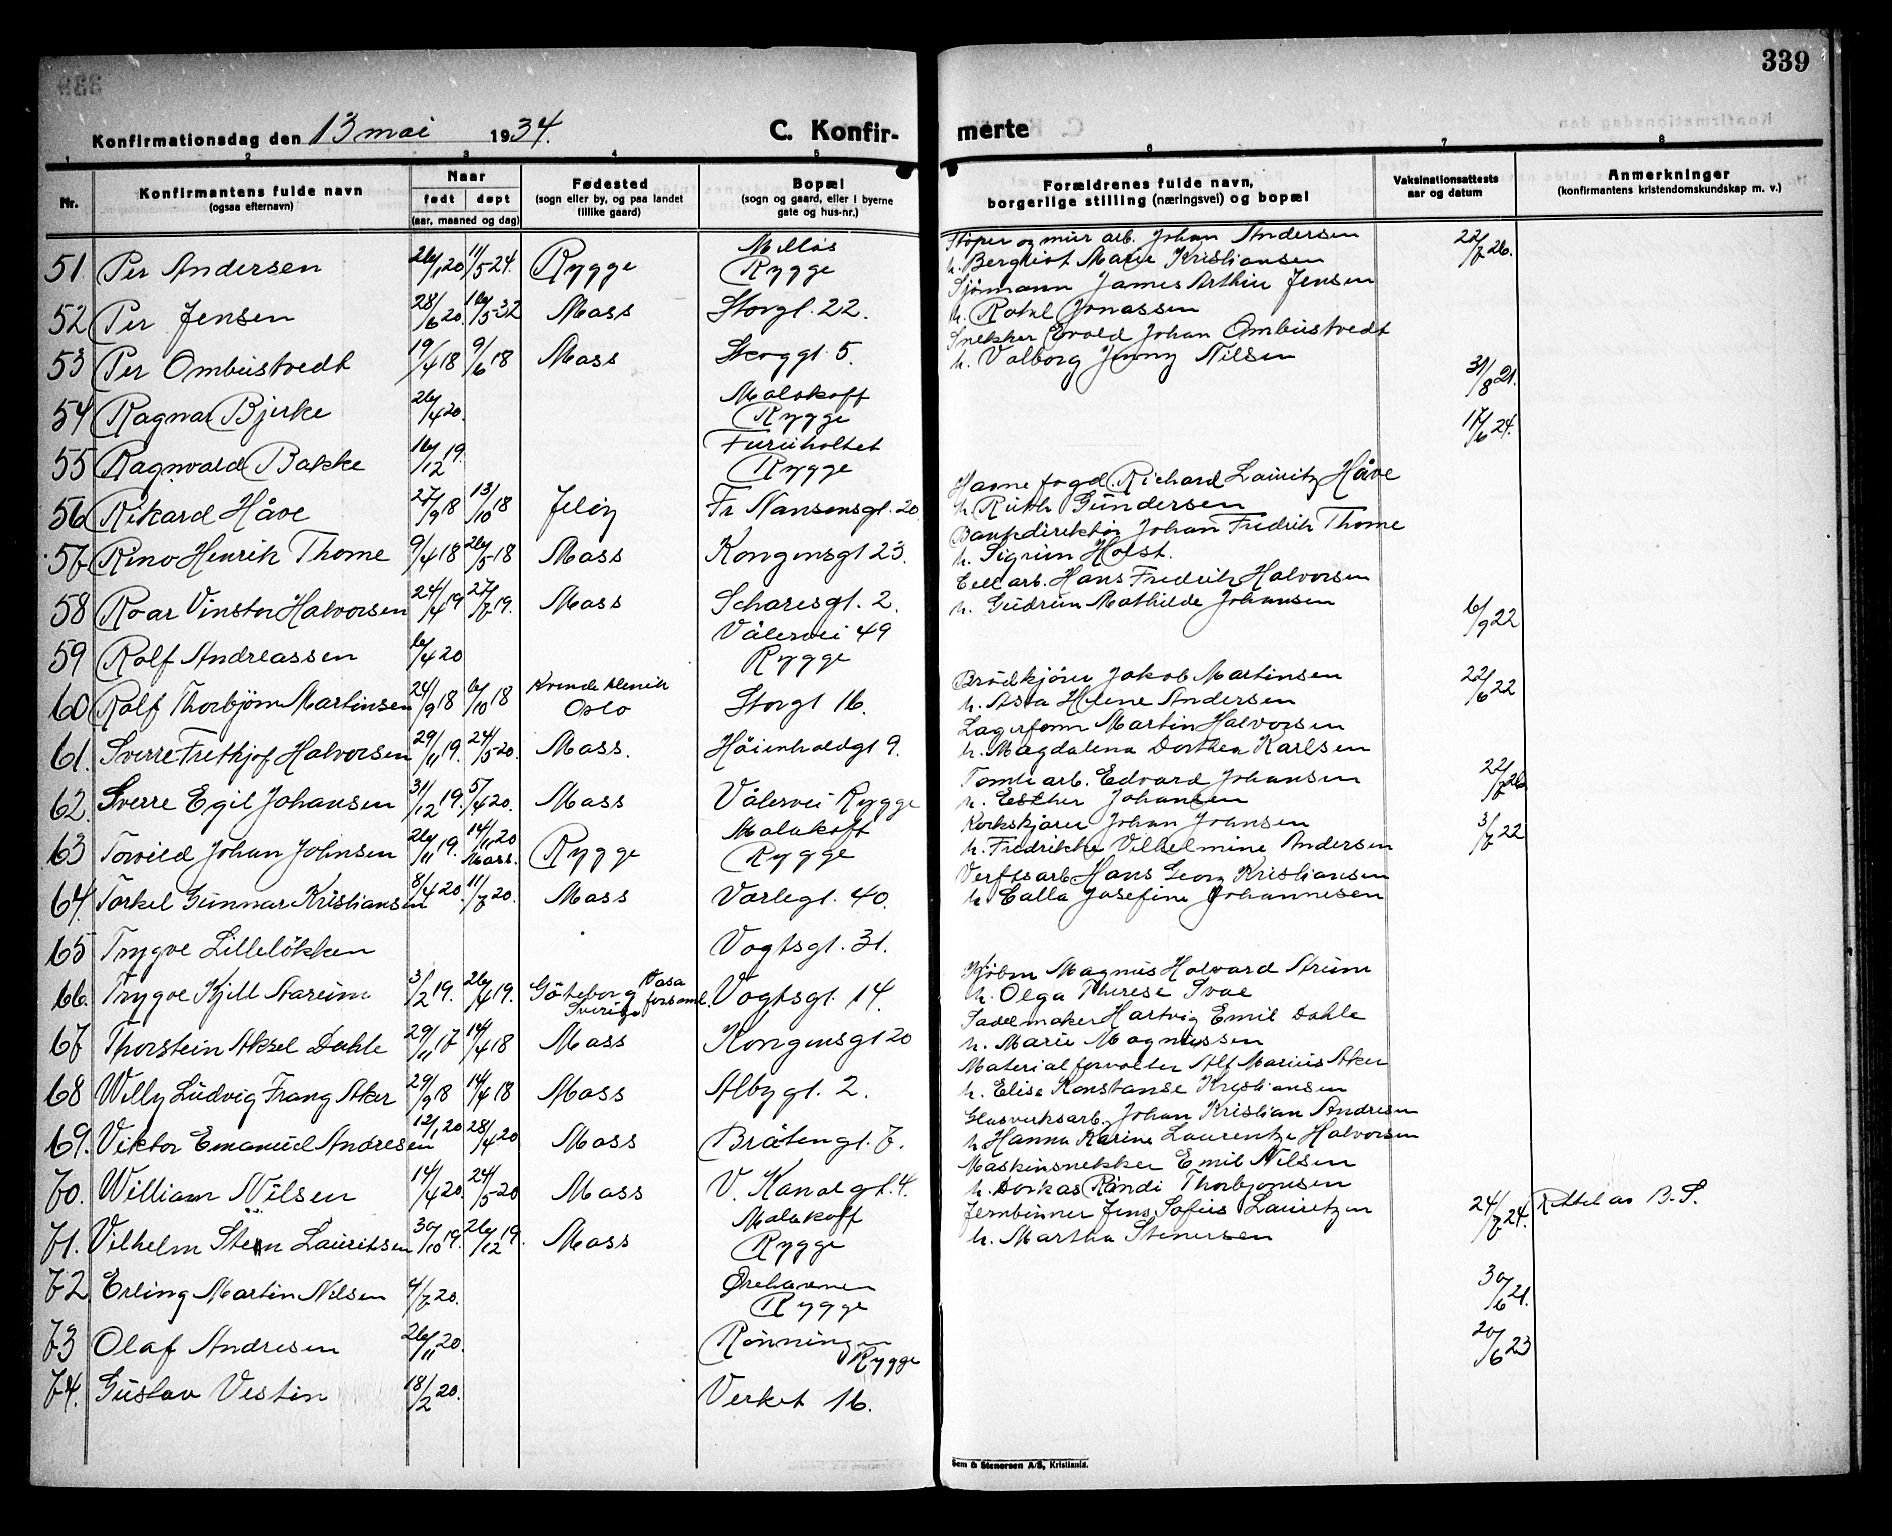 339
Konfirmationsdag den 13 mai 1934. C. Konfir-
merte
1 2 3 4 5 6 7 8
Nr. Konfirmantens fulde navn (ogsaa efternavn) Naar født døpt (aar, maaned og dag) Fødested (sogn eller by, og paa landet tillike gaard) Bopæl (sogn og gaard, eller i byerne gate og hus-nr.) Forældrenes fulde navn, borgerlige stilling (næringsvei) og bopæl Vaksinationsattests aar og datum Anmerkninger (konfirmantens kristendomskundskap m. v.)
51. Per Andersen 26/1 20 11/5-24. Rygge Melløs Rygge Støper og mur arb. Johan Andersen 22/7 26.
h. Bergliot Marie Kristiansen
52 Per Jensen 28/6 20. 16/5-32 Moss Storgt. 22. Sjømann James Arthur Jensen
h. Rakel Jonassen
53 Per Ombustvedt 19/4 18 9/6 18 Moss Skoggt. 5. Snekker Evald Johan Ombustvedt
h. Valborg Jenny Nilsen
54 Ragnar Bjerke 26/4 20. Malakoff Rygge 31/8 21.
55 Ragnvald Bakke 16/12 19. Furuholtet Rygge 17/6 24.
56 Rikard Håve 27/9 18 13/10 18 Jeløy Fr Nansensgt. 20 Havne fogd Richard Lauritz Håve
h. Ruth Gundersen
57. Rino Henrik Thome 9/4 18 26/5-18 Moss Kongensgt 23. Bankdirektør Johan Fredrik Thome
h. Sigrun Holst.
58 Roar Vinstor Halvorsen 24/4 19 27/7 19. Moss Scharesgt. 2. Cell arb. Hans Fredrik Halvorsen
h. Gudrun Mathilde Johansen
59 Rolf Andreassen 16/4 20 Vålervei 49 Rygge 6/9 22
60 Rolf Thorbjørn Martinsen 24/9 18 6/10 18 Oslo Storgt 16. Brødkjører Jakob Martinsen 22/6 22
h. Asta Helene Andersen
61. Sverre Fritkjof Halvorsen 29/11 19. 24/5-20. Moss. Høienholdgt 9. Lagerform Martin Halvorsen
h. Magdalena Dorthea Karlsen
62. Sverre Egil Johansen 31/12 19. 5/4 20. Moss Vålervei Rygge Tomte arb. Edvard Johansen 22/7 26
h. Esther Johansen
63 Torvild Johan Johnsen 26/11 19. 14/11 20 Moss. Rygge Malakoff Rygge Korkskjærer Johan Johnsen 3/7 22
h. Fredrikke Vilhelmine Andersen
64. Torkel Gunnar Kristiansen 8/4 20. 11/7 20. Moss Varlegt. 40. Verftsarb Hans Georg Kristiansen
h Calla Josefine Johannesen
65 Trygve Lilleløkken Vogtsgt. 31.
66. Trygve Kjell Aarum 3/2 19. 26/4 19. Göteborg Vasa forsaml. Sverige Vogtsgt. 14. Kjøbm Magnus Halvard Arum
h. Olga Therese Svae
67 Thorstein Aksel Dahle 29/11 17 14/4 18 Moss Kongensgt 20 Sadelmaker Hartvig Emil Dahle
h. Marie Magnussen
68 Willy Ludvig Frang Aker 29/9 18 14/4 18 Moss Albygt. 2. Materialforvalter Alf Marius Aker
h. Elise Konstanse Kristiansen
69. Viktor Emanuel Andresen 12/1 20 28/4 20 Moss Bråtengt. 7. Glasverksarb. Johan Kristian Andresen
h Hanna Karine Laurentze Halvorsen
70. William Nilsen 14/4 20. 24/5-20 Moss V. Kanalgt. 4. Maskinsnekker Emil Nilsen
h. Dorkas Randi Thorbjørnsen
71. Vilhelm Sten Lauritsen 30/10 19. 26/12 19. Moss Malakoff Rygge Jernbinner Jens Sofus Lauritzen 24/7 24. Rettel av B. S.
h. Martha Stenersen
72. Erling Martin Nilsen 4/7 20. Ørehavnen Rygge 30/6 21.
73 Olaf Andresen 26/11 20. Rønningen Rygge 20/6 23
74. Gustav Vestin 18/2 20. Verket 16.
Sem & Stenersen A/S, Kristiania.